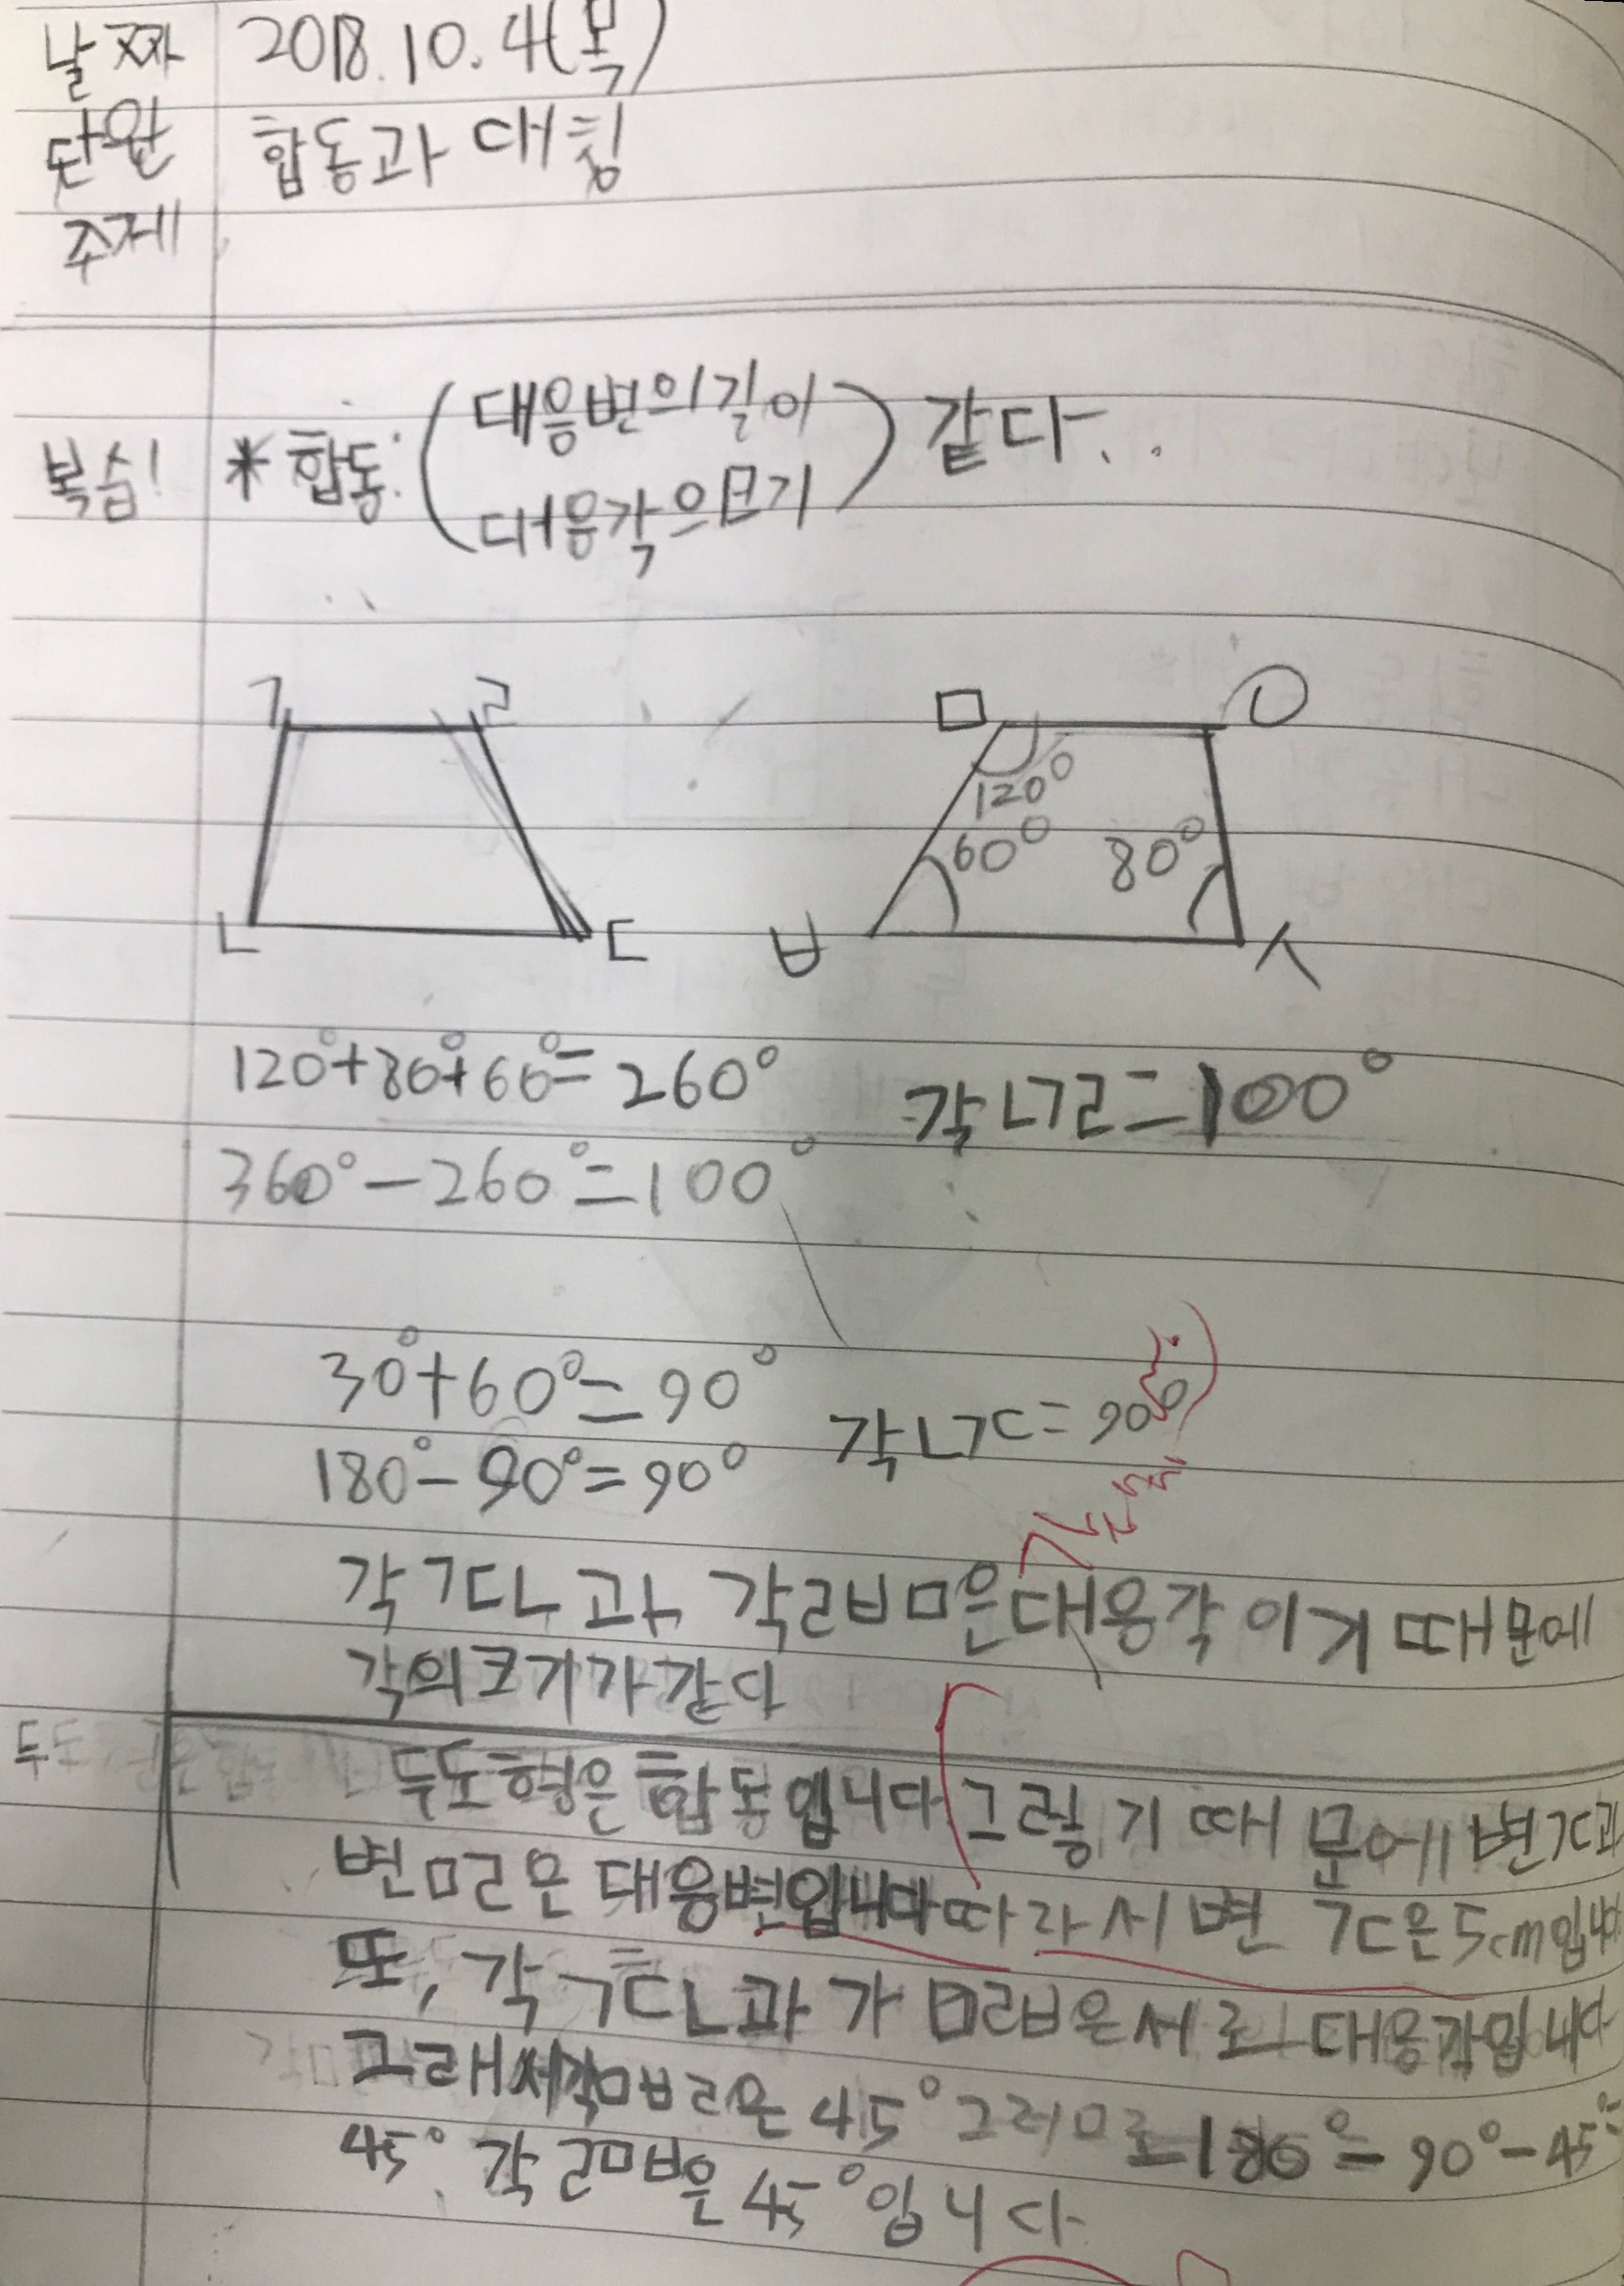 날짜 2018.10.4(목)
단원 합동과 대칭
주제
복습! *합동: (대응변의길이
대응각의크기) 같다..
ㄱ ㄹ ㅁ ㅇ
120°
60° 80°
ㄴ ㄷ ㅂ ㅅ
120°+80°+60°=260° 각ㄴㄱㄹ=100°
360°-260°=100°
30°+60°=90° 각ㄴㄱㄷ=90°
180°-90°=90°
각ㄱㄷㄴ과 각ㄹㅂㅁ은대응각 이기 때문에
각의크기가같다
두도형은 합동입니다 그렇기 때문에 변ㄱㄷ과
변ㅁㄹ은 대응변입니다 따라서 변 ㄱㄷ은 5cm입니다
또, 각 ㄱㄷㄴ과 가 ㅁㄹㅂ은 서로 대응각입니다
그래서각ㅁㅂㄹ은 45° 그러므로 180°-90°-45°=
45° 각 ㄹㅁㅂ은 45°입니다